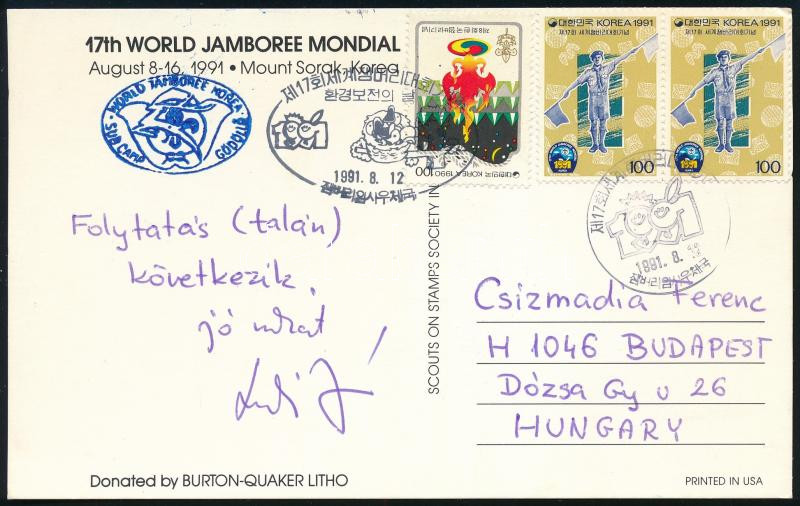 17th WORLD JAMBOREE MONDIAL
August 8-16, 1991 • Mount Sorak, Korea
WORLD JAMBOREE KOREA
SUB CAMP GÖDÖLLŐ
제17회세계잼버리대회
환경보전의 날
1991. 8. 12
잼버리임시우체국
제8회한국잼버리기념
대한민국 KOREA 1990
100
대한민국 KOREA 1991
제17회세계잼버리대회기념
1991
100
대한민국 KOREA 1991
제17회세계잼버리대회기념
1991
100
제17회세계잼버리
1991. 8.
잼버리임시우체국
Folytatás (talán)
következik,
jó
SCOUTS ON STAMPS SOCIETY IN
Csizmadia Ferenc
H 1046 BUDAPEST
Dózsa Gy u 26
HUNGARY
Donated by BURTON-QUAKER LITHO
PRINTED IN USA